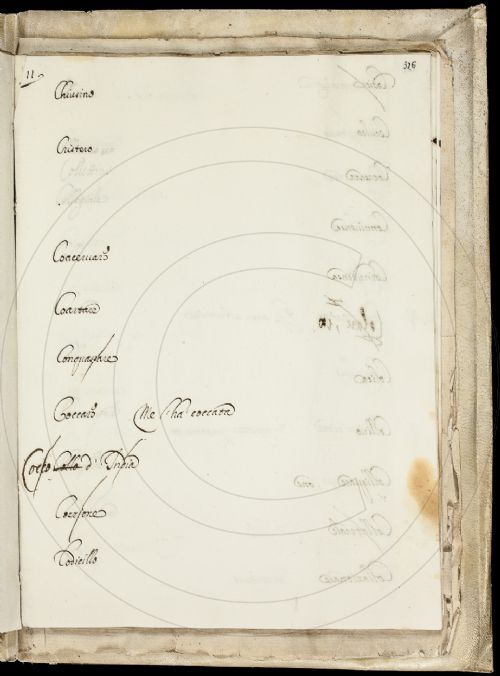 11
326
Chiusino
Cristero
Coartare
Conquassare
Coccare Me l'ha coccata
Cocco d'India
Coccione
Codicillo